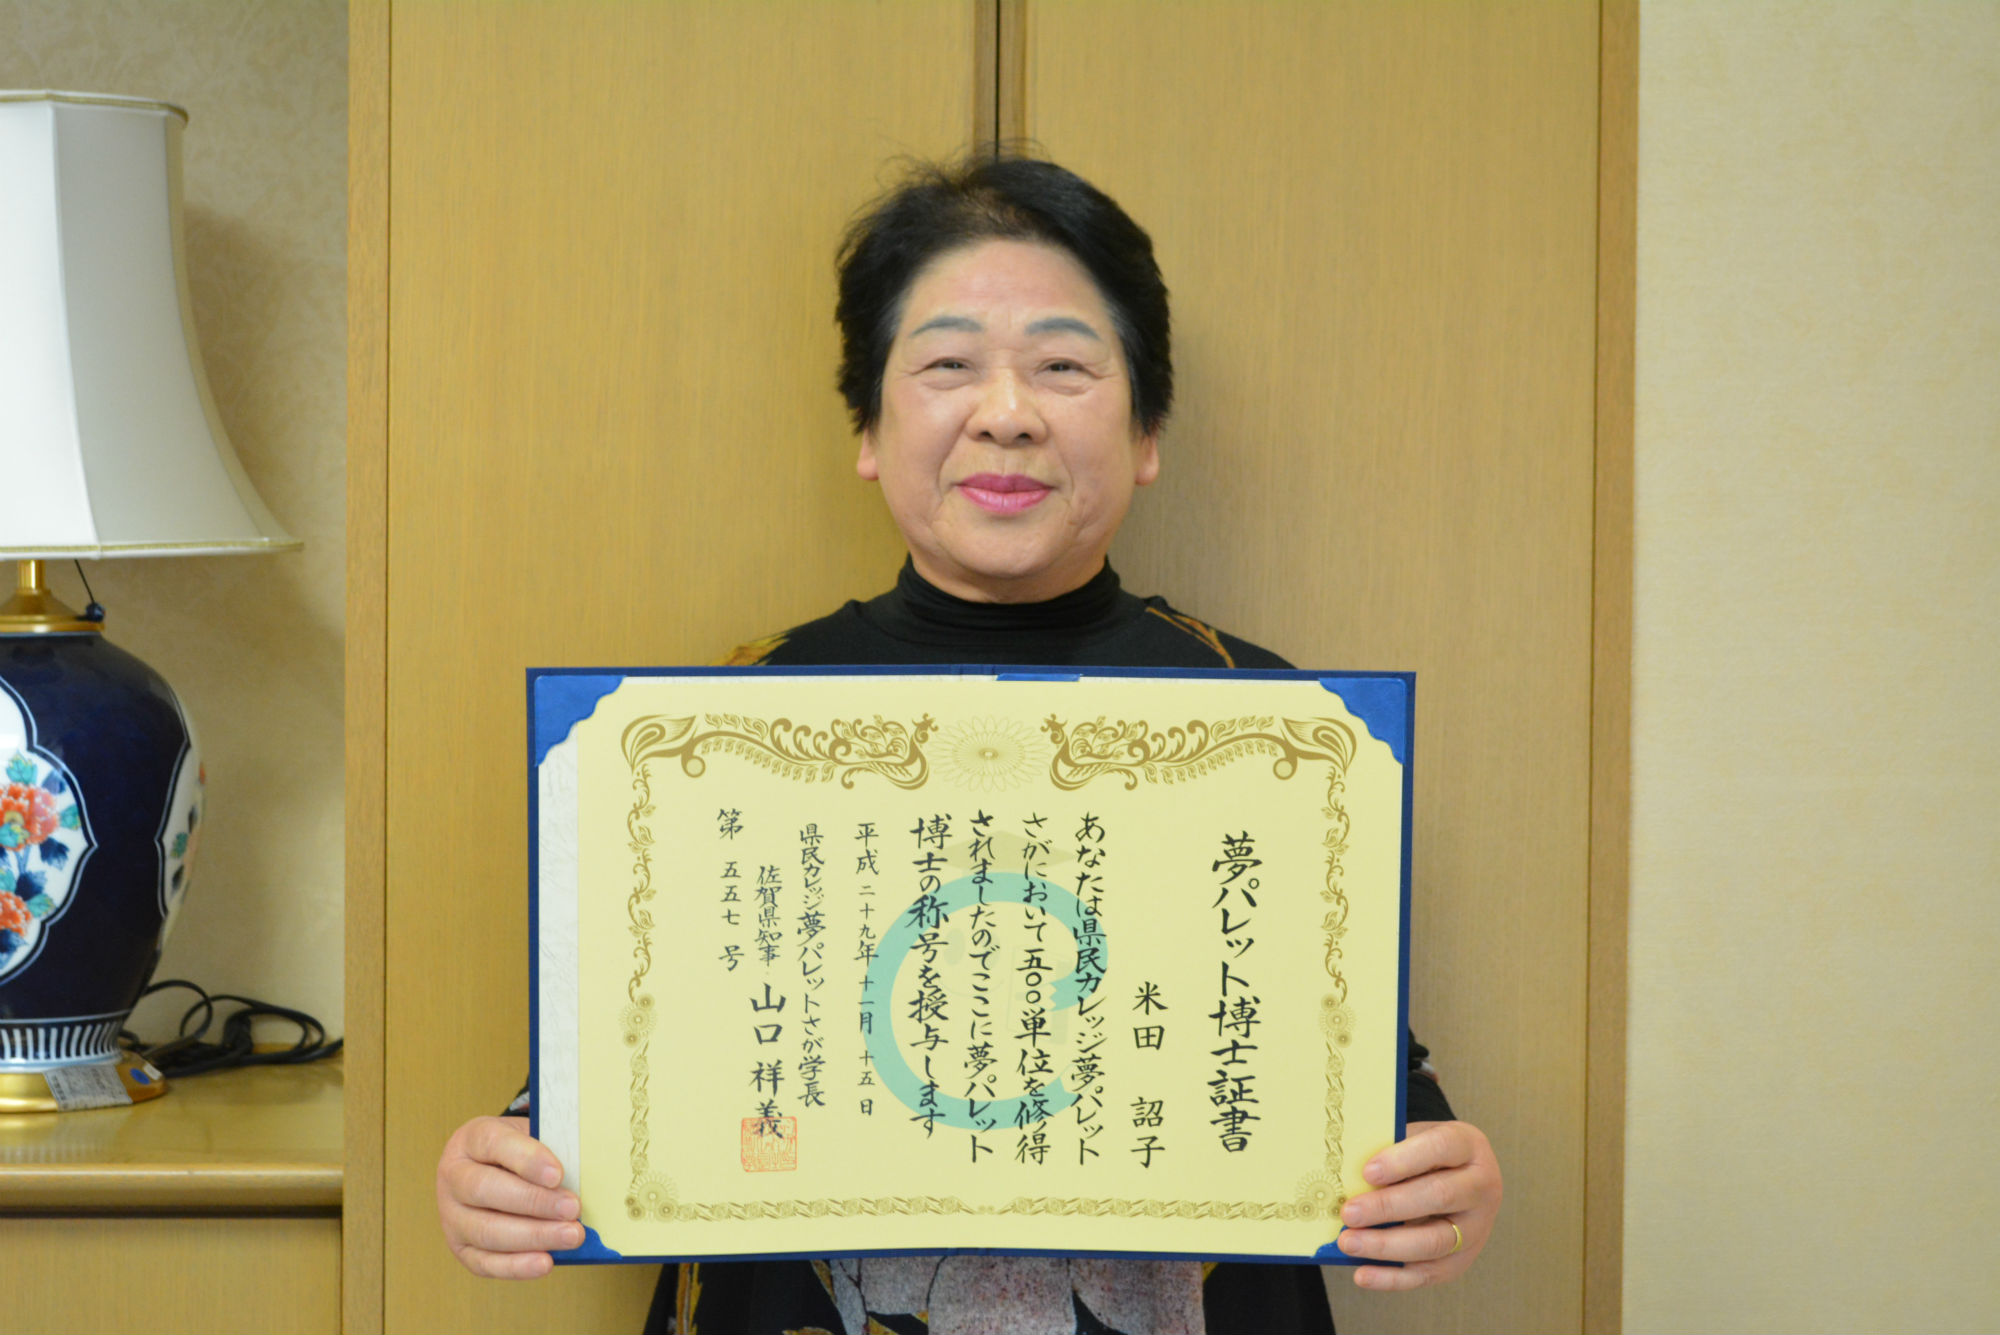 夢パレット博士証書
米田 詔子
あなたは県民カレッジ夢パレット
さがにおいて五〇〇単位を修得
されましたのでここに夢パレット
博士の称号を授与します
平成二十九年十一月十五日
県民カレッジ夢パレットさが学長
佐賀県知事 山口 祥義
第 五五七 号